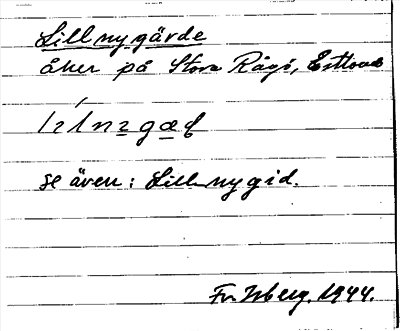 Lillnygärde
åker på Stora Rågö, Estland
se även: Lillnygid.
Fr. Isberg. 1944.